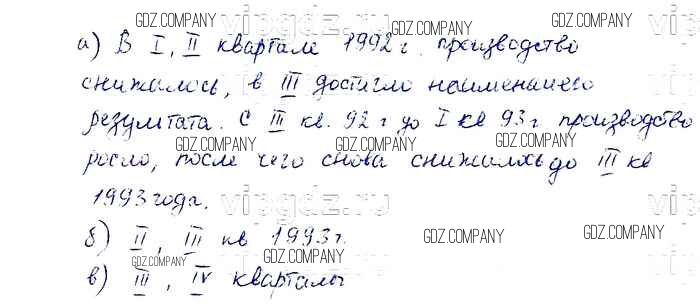 GDZ.COMPANY
GDZ.COMPANY
vipgdz.ru
а) В I, II квартале 1992 г. производство
GDZ.COMPANY
снижалось, в III достигло наименьшего
GDZ.COMPANY
результата. С III кв. 92 г до I кв 93 г производство
GDZ.COMPANY
GDZ.COMPANY
росло, после чего снова снижалось до III кв
1993 года.
vipgdz.ru
vipgdz.ru
б) II, III кв 1993 г.
GDZ.COMPANY
GDZ.COMPANY
GDZ.COMPANY
в) III, IV кварталы